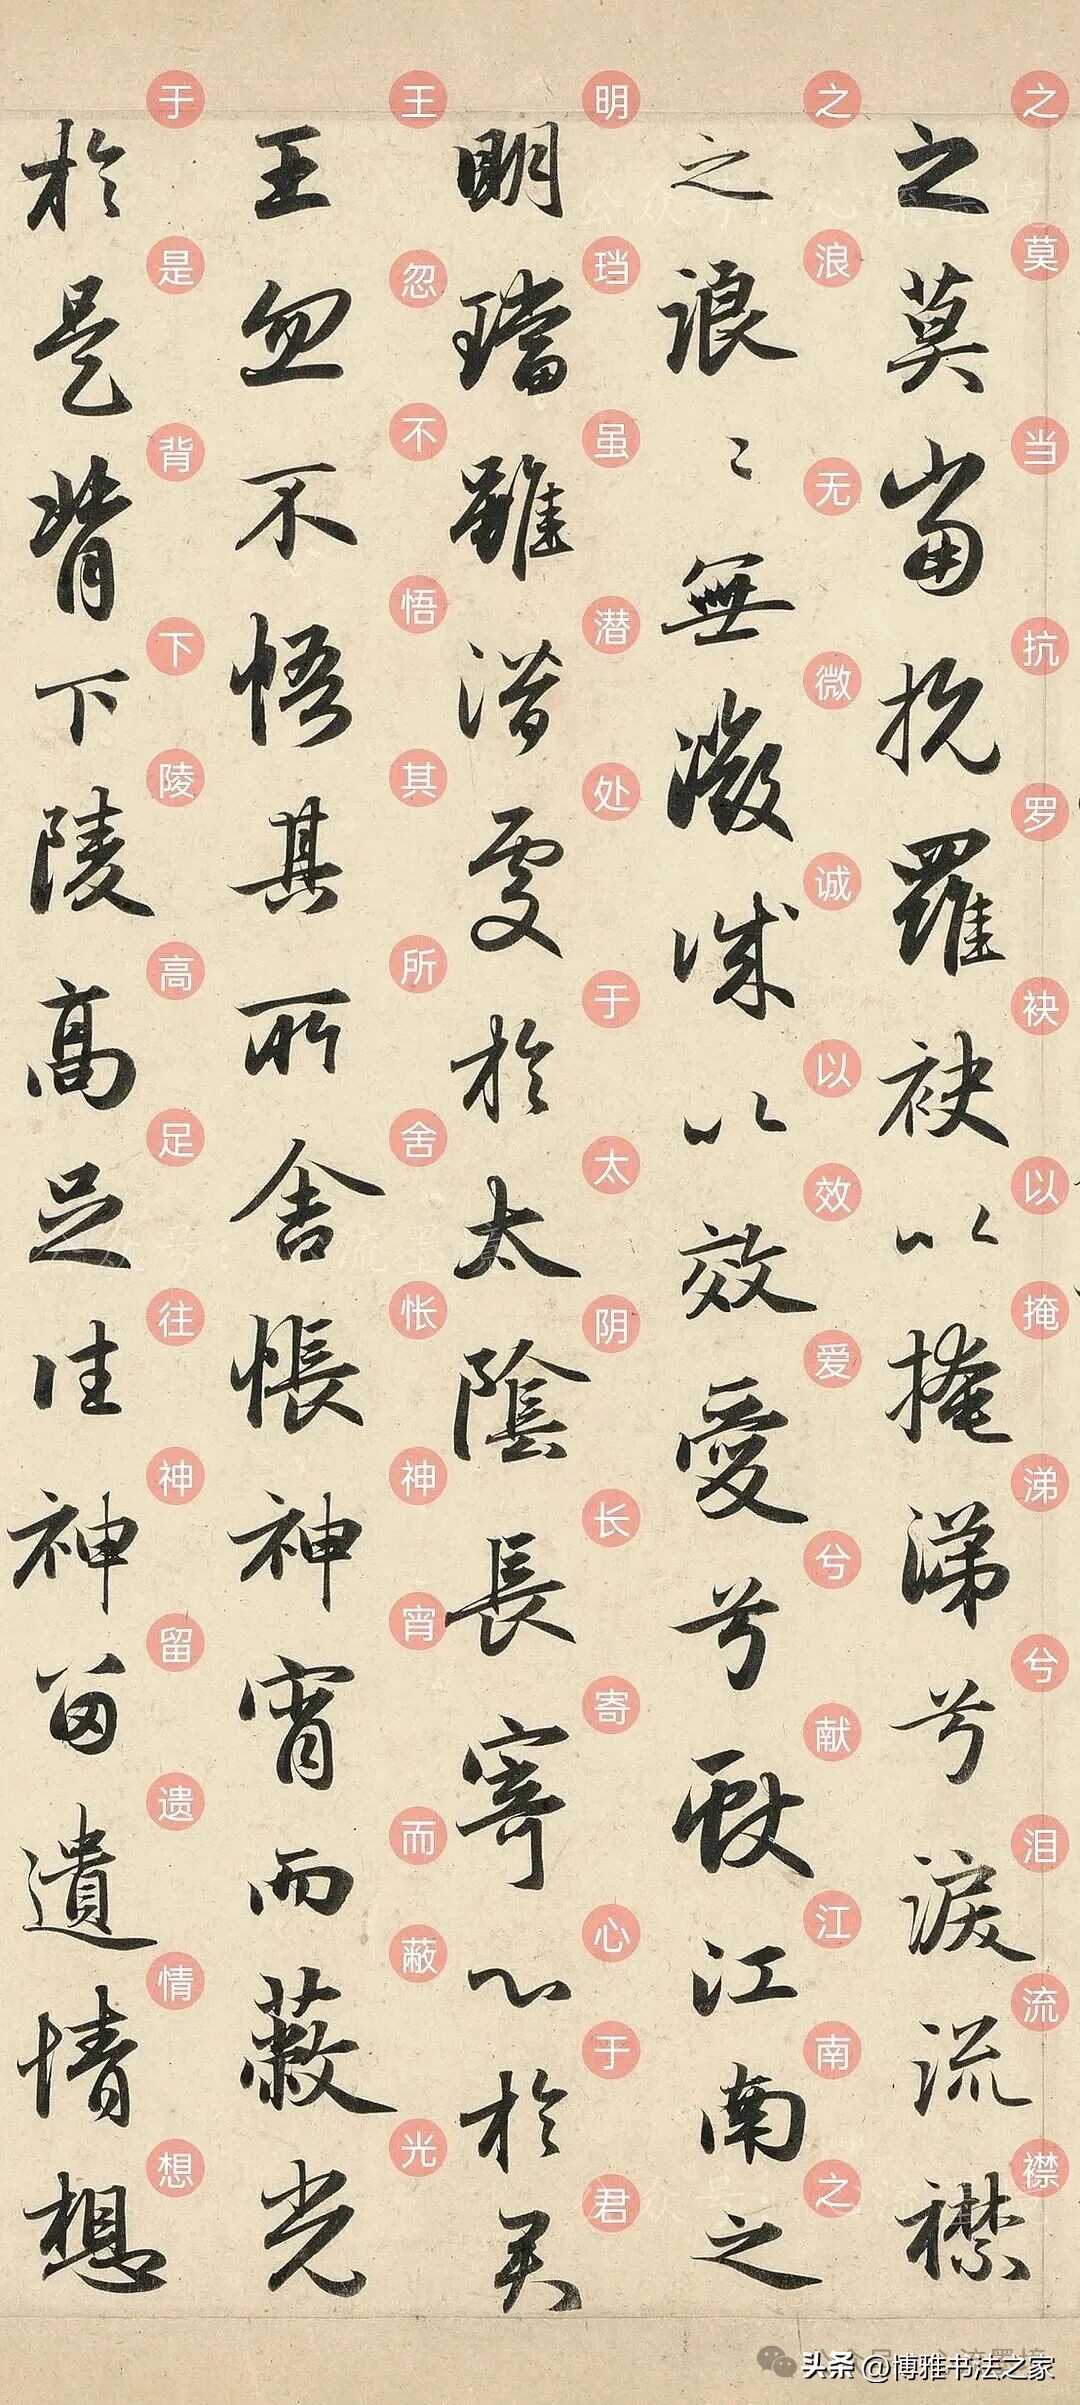 之莫当抗罗袂以掩涕兮泪流襟
之莫當抗羅袂以掩涕兮淚流襟
之浪无微诚以效爱兮献江南之
之浪〻無微誠以效愛兮獻江南之
明珰虽潜处于太阴长寄心于君
明璫雖潛處於太陰長寄心於君
王忽不悟其所舍怅神宵而蔽光
王忽不悟其所舍悵神宵而蔽光
于是背下陵高足往神留遗情想
於是背下陵高足往神留遺情想
头条 @博雅书法之家